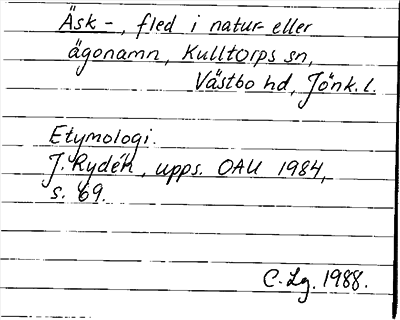 Äsk-, fled i natur- eller
ägonamn, Kulltorps sn,
Västbo hd, Jönk. l.
Etymologi.
J. Rydén, upps. OAU 1984,
s. 69.
C. Lg. 1988.